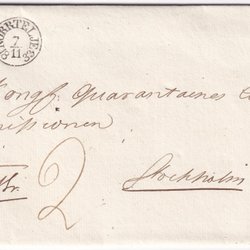 NORRTELJE
7
11
Kongl. Quarantaines C
missionen
2
Stockholm